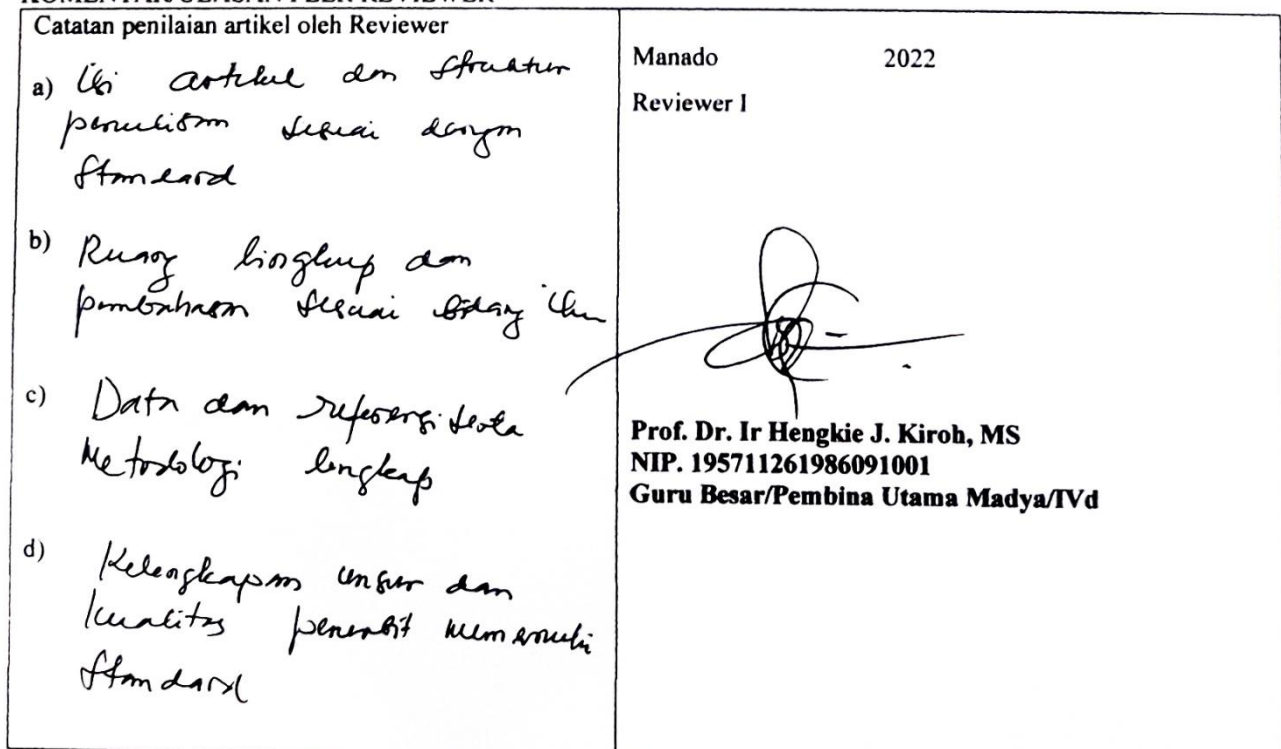 KOMENTAR ULASAN PEER REVIEWER
Catatan penilaian artikel oleh Reviewer
a) Isi artikel dan Struktur
penulisan sesuai dengan
Standard
b) Ruang lingkup dan
pembahasan sesuai bidang ilmu
c) Data dan referensi serta
Metodologi lengkap
d) Kelengkapan unsur dan
kualitas penerbit memenuhi
Standard
Manado 2022
Reviewer I
Prof. Dr. Ir Hengkie J. Kiroh, MS
NIP. 195711261986091001
Guru Besar/Pembina Utama Madya/IVd